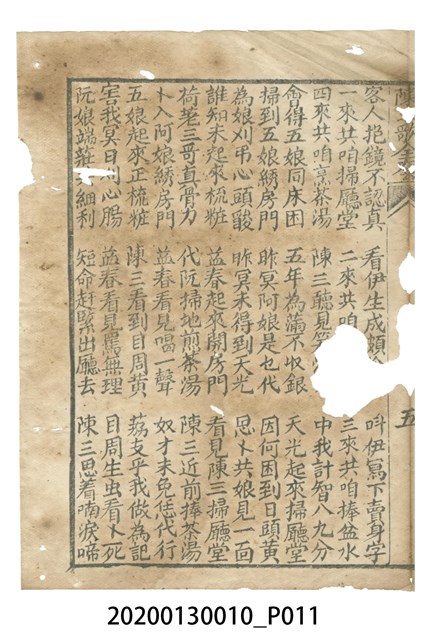 陳歌全
五
客人抱鏡不認真 看伊生成頗 呌伊寫下賣身字
一來共咱掃廳堂 二來共咱 三來共咱捧盆水
四來共咱烹茶湯 陳三聽見笑 中我計智八九分
會得五娘同床困 五年為滿不收銀 天光起來掃廳堂
掃到五娘綉房門 昨冥阿娘是乜代 因何困到日頭黃
為娘刈弔心頭酸 昨冥未得到天光 思卜共娘見一面
誰知未起來梳粧 益春起來開房門 看見陳三掃廳堂
荷荖三哥真骨力 代阮掃地煎茶湯 陳三近前捧茶湯
卜入阿娘綉房門 益春看見喝一聲 奴才未免恁代行
五娘起來正梳粧 陳三看到目周黃 荔支乎我做為記
害我冥日 心腸 益春看見罵無理 目周生虫看卜死
阮娘端莊 細利 短命赶緊出廳去 陳三思着喃淚啼
20200130010_P011